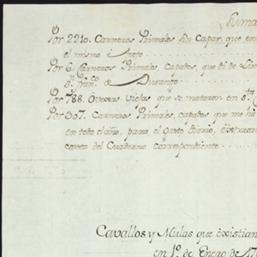 Suma
Por 2210. Carneros Primales sin Capar, que en
el mismo
Por 6 Carneros Primales, capados, que di de
Dn. Franco. de Durango
Por 788. Ovexas viejas que se mataron en
Por 507. Carneros Primales, capados, que me ha
en todo el año, para el Gasto diario,
consta del Quaderno correspondiente
Cavallos y Mulas que existian
en 1º de Enero de 17